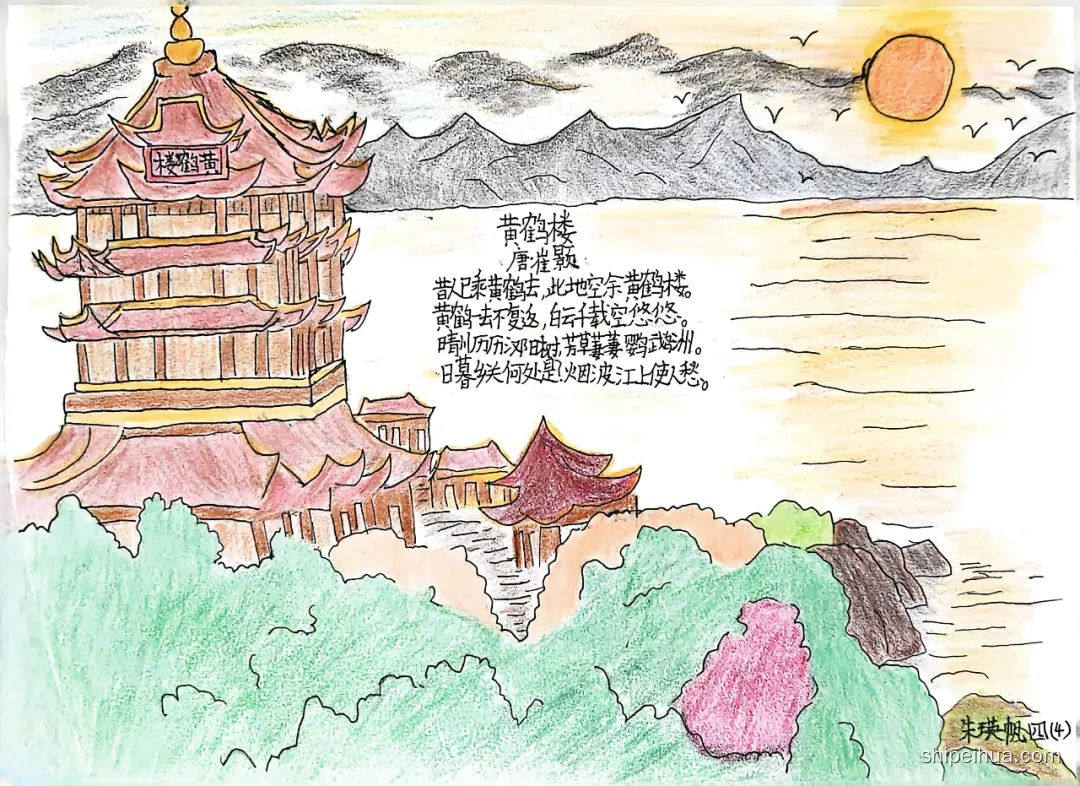 黄鹤楼
黄鹤楼
唐崔颢
昔人已乘黄鹤去,此地空余黄鹤楼。
黄鹤一去不复返,白云千载空悠悠。
晴川历历汉阳树,芳草萋萋鹦鹉洲。
日暮乡关何处是?烟波江上使人愁。
朱瑛帆四(4)
shipeihua.com